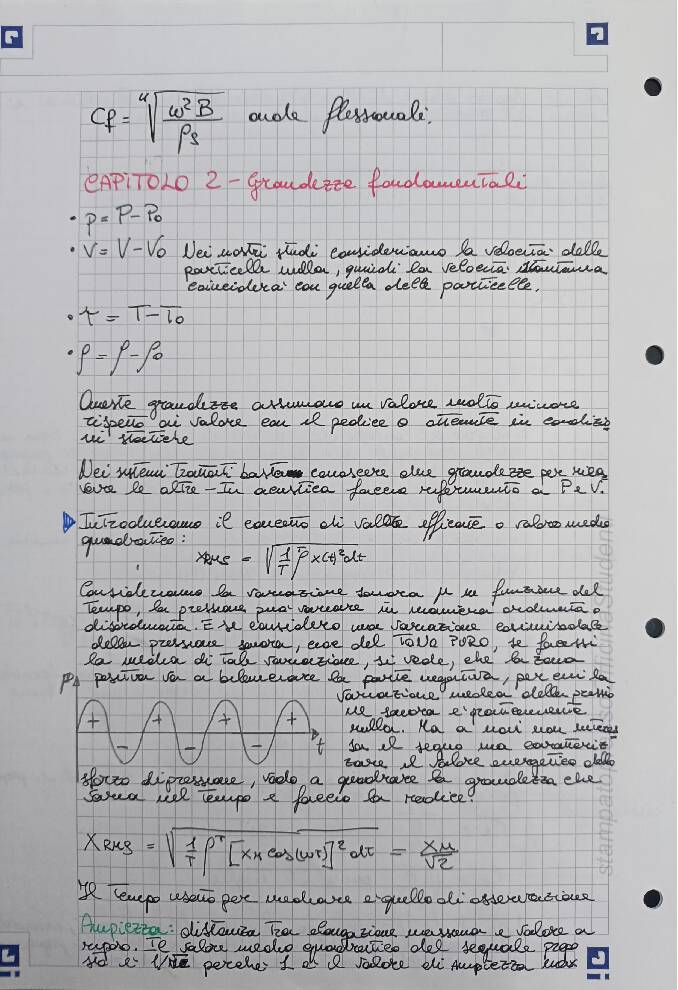 Cf = ⁴√(ω²B / ρs) onde flessionali.
CAPITOLO 2 - Grandezze fondamentali
• p = P - P₀
• v = V - V₀ Nei nostri studi consideriamo la velocità delle
particelle nulla, quindi la velocità istantanea
coinciderà con quella delle particelle.
• τ = T - T₀
• ρ = ρ - ρ₀
Queste grandezze assumono un valore molto minore
rispetto ai valore con il pedice 0 ottenute in condizio
ni statiche
Nei sistemi trattati basta conoscere due grandezze per rica
vare le altre - In acustica faccio riferimento a P e V.
Introduciamo il concetto di valore efficace o valore medio
quadratico:
XRMS = √(1/T ∫ᵀ x(t)² dt)
Consideriamo la variazione sonora in funzione del
tempo, la pressione può variare in maniera ordinata o
disordinata. E se considero una variazione cosinusoidale
della pressione sonora, cioè del TONO PURO, se facessi
la media di tale variazione, si vede, che la zona
positiva va a bilanciare la parte negativa, per cui la
P
+ + + +
- - -
t
variazione media della pressio
ne sonora è praticamente
nulla. Ma a noi non interes
sa il segno ma caratteriz
zare il valore energetico dello
sforzo di pressione, vado a quadrare la grandezza che
varia nel tempo e faccio la radice:
XRMS = √(1/T ∫ᵀ [XM cos(ωT)]² dt) = XM/√2
Il tempo usato per mediare è quello di osservazione
Ampiezza: distanza tra elongazione massima e valore a
riposo. Il valore medio quadratico del segnale
è 1/√2 perché 1 è il valore di Ampiezza max
stampato
studenti